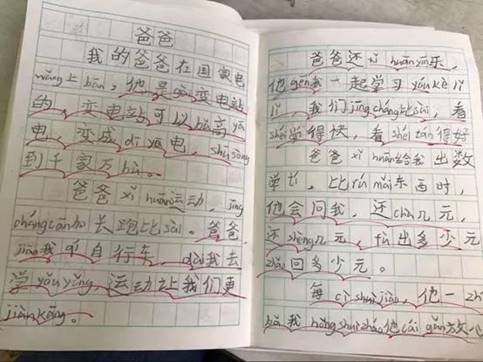 爸爸
我的爸爸在国家电
wǎng上bān，他是gǎo变电站
的，变电站可以bǎ高yā
电，变成dī yā电，shū sòng
到千家万hù。
爸爸xǐ huān运动，jīng
cháng cān加长跑比sài。爸爸
jiāo我qí自行车，dài我去
学yóu yǒng，运动让我们更
jiàn kāng。
爸爸还xǐ huān玩乐，
他gēn我一起学习yóu kè lǐ
lǐ，我们jīng cháng比sài，看
shéi学得快，看shéi tán得好
爸爸xǐ huān给我出数
学tí，比rú mǎi东西时，
他会问我，还chà几元，
还shèng几元，fù出多少元
zhǎo回多少元。
每cì shuì jiào，他一zhí
bǎ我hǒng shuì zháo他cái gǎn放心